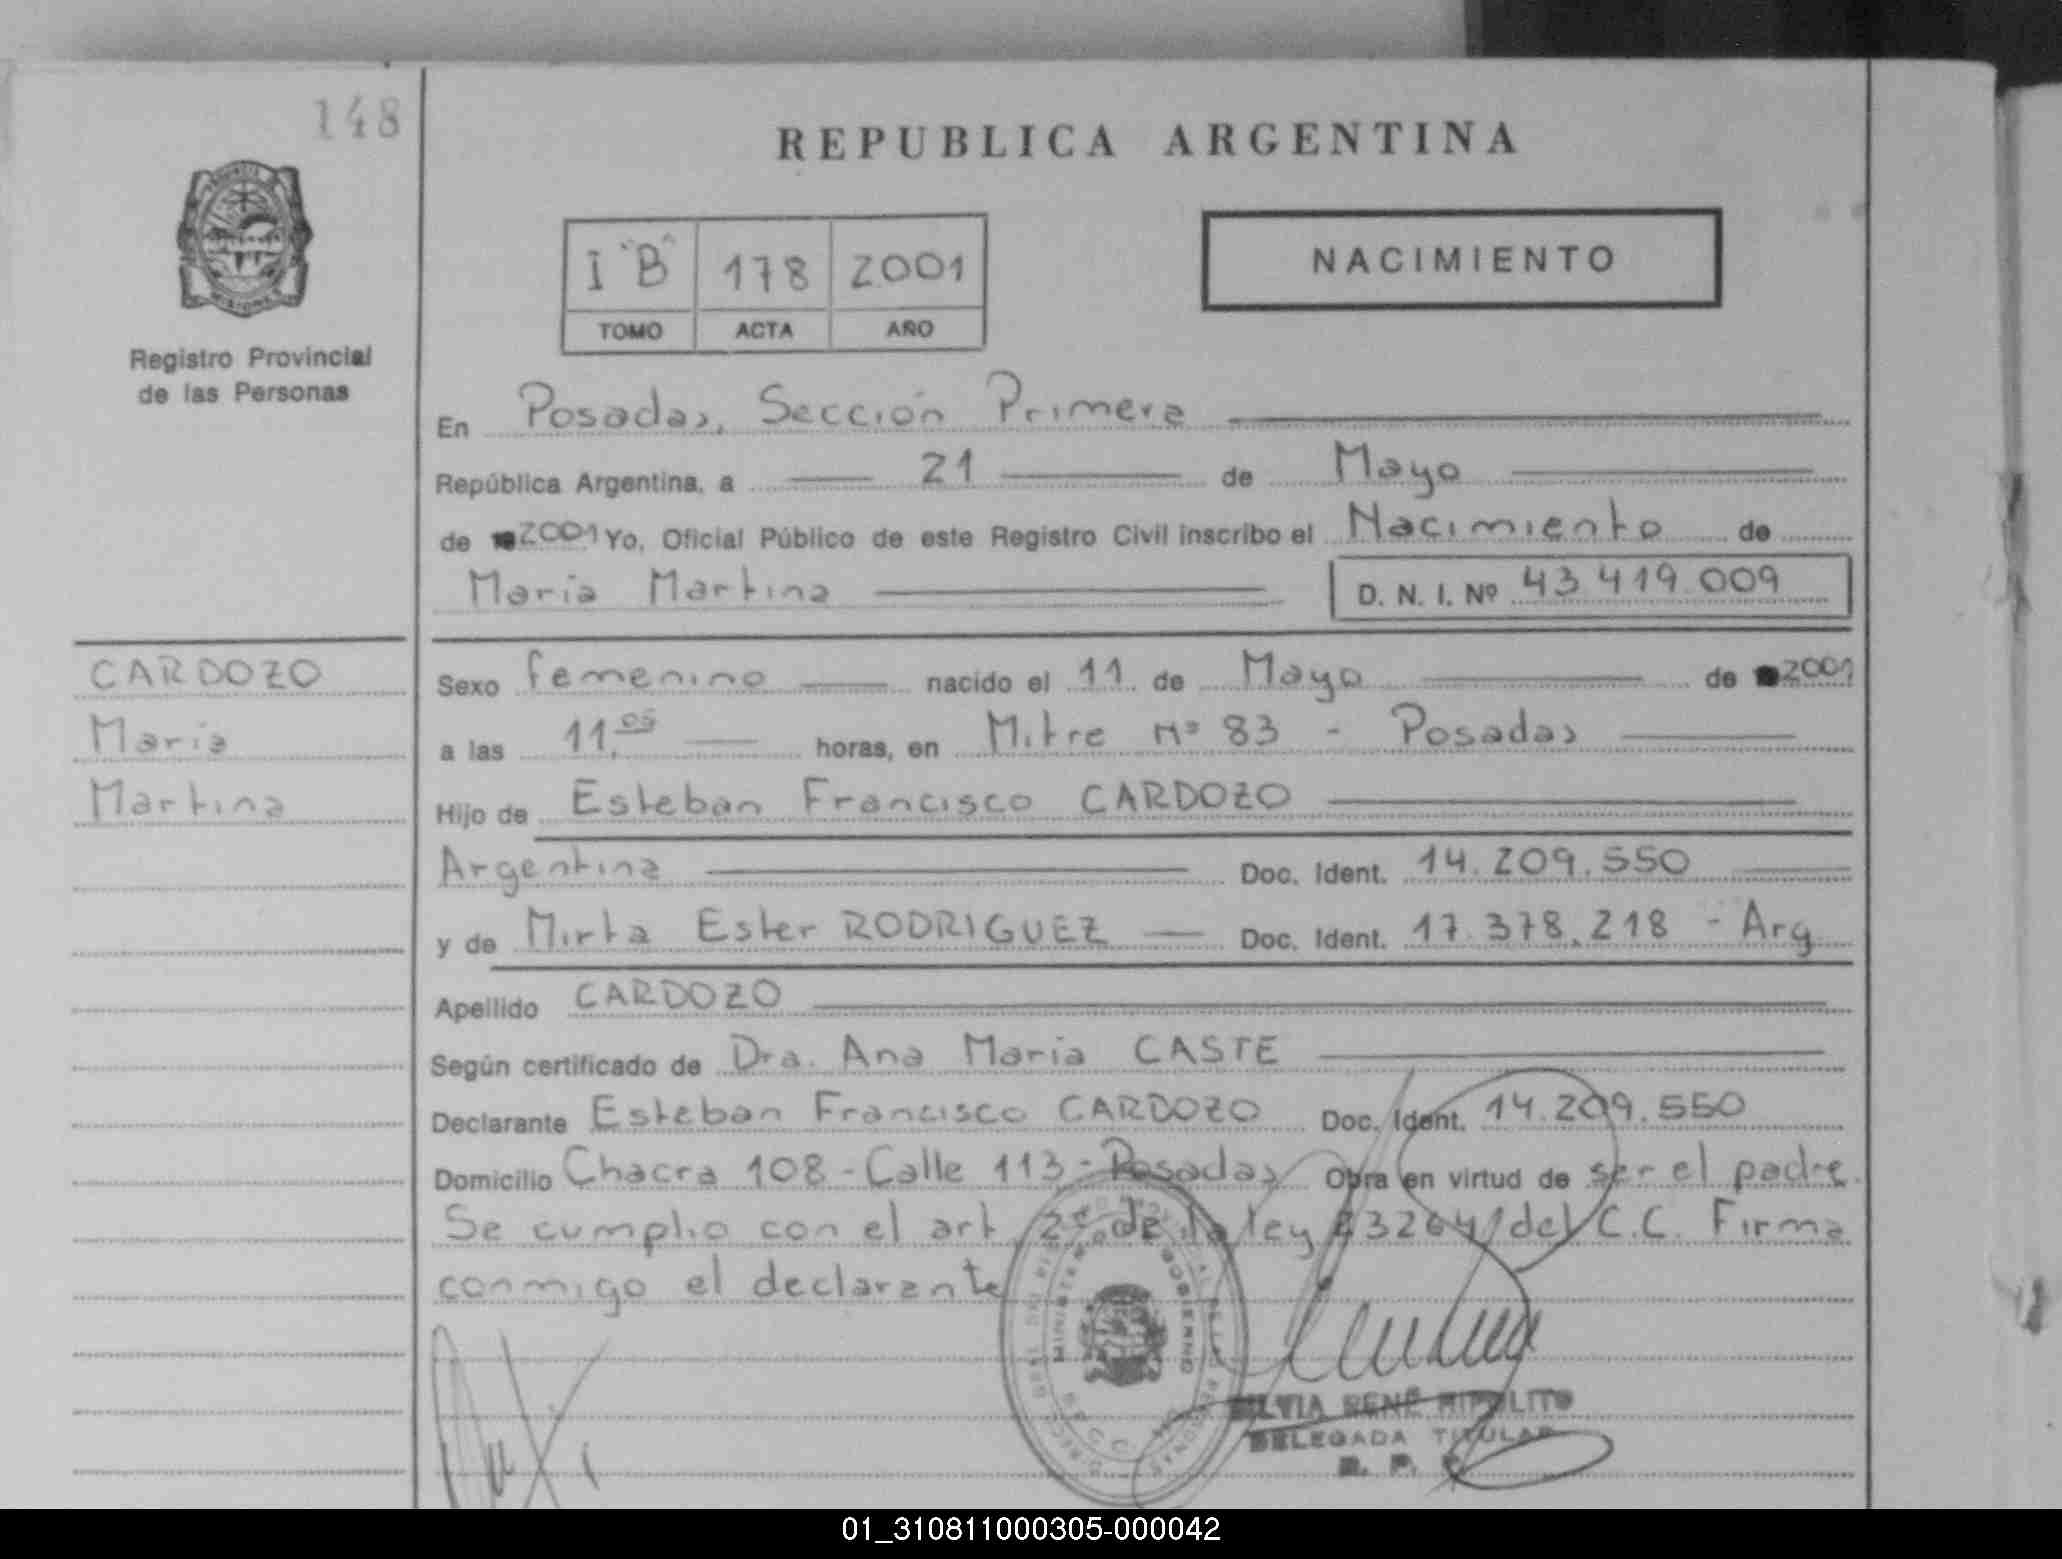 148
REPUBLICA ARGENTINA
I "B" 178 2001
TOMO ACTA AÑO
NACIMIENTO
Registro Provincial
de las Personas
En Posadas, Sección Primera
República Argentina, a 21 de Mayo
de 2001 Yo, Oficial Público de este Registro Civil inscribo el Nacimiento de
María Martina D. N. I. Nº 43.419.009
CARDOZO
María
Martina
Sexo femenino nacido el 11 de Mayo de 2001
a las 11,05 horas, en Mitre Nº 83 - Posadas
Hijo de Esteban Francisco CARDOZO
Argentina Doc. Ident. 14.209.550
y de Mirta Ester RODRIGUEZ Doc. Ident. 17.378.218 - Arg
Apellido CARDOZO
Según certificado de Dra. Ana María CASTE
Declarante Esteban Francisco CARDOZO Doc. Ident. 14.209.550
Domicilio Chacra 108 - Calle 113 - Posadas Obra en virtud de ser el padre.
Se cumplio con el art. 2º de la ley 23264 del C.C. Firma
conmigo el declarante
MINISTERIO DE GOBIERNO
SILVIA RENÉ HIPOLITO
DELEGADA TITULAR
R. P. P.
01_310811000305-000042